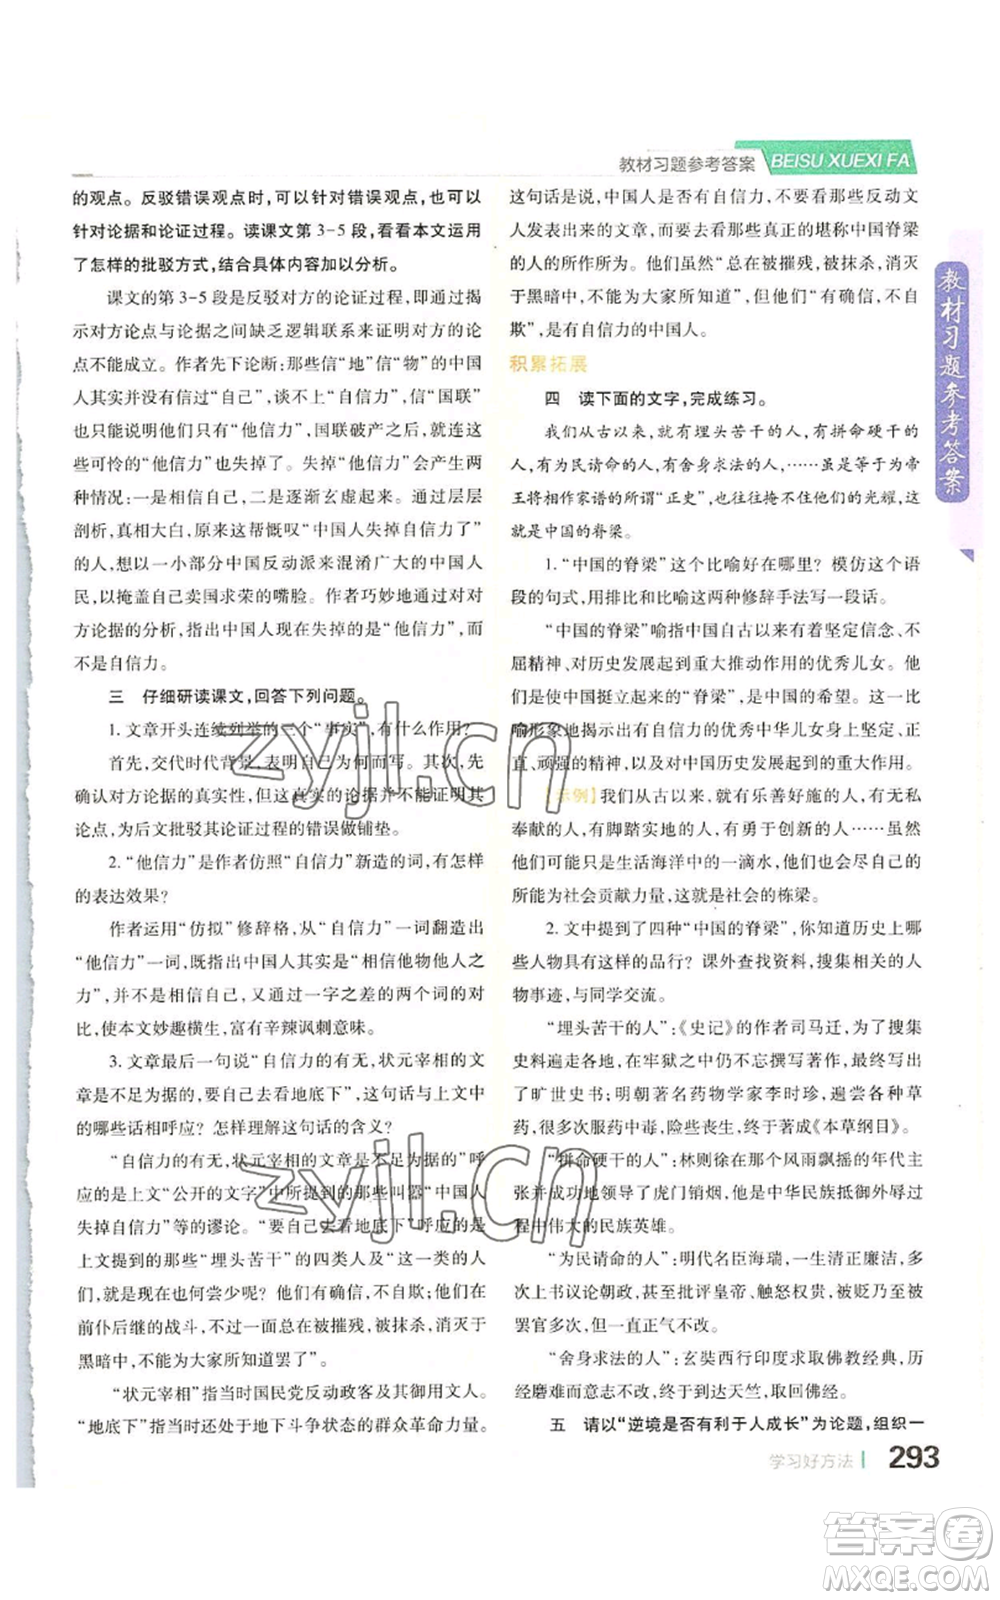 教材习题参考答案
BEISU XUEXI FA
的观点。反驳错误观点时,可以针对错误观点,也可以
针对论据和论证过程。读课文第3-5段,看看本文运用
了怎样的批驳方式,结合具体内容加以分析。
课文的第3-5段是反驳对方的论证过程,即通过揭
示对方论点与论据之间缺乏逻辑联系来证明对方的论
点不能成立。作者先下论断:那些信“地”信“物”的中国
人,其实并没有信过“自己”,谈不上“自信力”,信“国联”
只能说明他们只有“他信力”,国联破产之后,就连这一
些可怜的“他信力”也失掉了。失掉“他信力”会产生两
种情况:一是多疑;二是逐渐玄虚起来。通过层层
剖析,真相大白,原来这帮慨叹“中国人失掉自信力了”
的人,是以一小部分中国反动派来混淆广大的中国人
民,以掩盖自己卖国求荣的嘴脸。作者巧妙地通过对对
方论据的分析,指出中国人现在失掉的是“他信力”,而
不是自信力。
三 仔细研读课文,回答下列问题。
1.文章开头连续列举的三个“事实”,有什么作用?
首先,交代时代背景,表明自己的爱憎。其次,先
确认对方论据的真实性,但这真实的论据并不能证明其
论点,为后文批驳其论证过程的错误做铺垫。
2.“他信力”是作者仿照“自信力”新造的词,有怎样
的表达效果?
作者运用“仿拟”修辞格,从“自信力”一词翻造出
“他信力”一词,既指出中国人其实是只“相信他物他人之
力”,并不是相信自己,又通过一字之差的两个词的对
比,使本文妙趣横生,富有辛辣讽刺意味。
3.文章最后一句说“自信力的有无,状元宰相的文
章是不足为据的,要自己去看地底下”,这句话与上文中
的哪些话相呼应?怎样理解这句话的含义?
“自信力的有无,状元宰相的文章是不足为据的”呼
应的是上文“公开的文字”中所提到的那些叫嚣“中国人
失掉自信力”等的谬论。“要自己去看地底下”呼应的是
上文提到的那些“埋头苦干”的四类人及“这一类的人
们,就是现在也何尝少呢?他们有确信,不自欺;他们在
前仆后继的战斗,不过一面总在被摧残,被抹杀,消灭于
黑暗中,不能为大家所知道罢了”。
“状元宰相”指当时国民党反动政客及其御用文人。
“地底下”指当时还处于地下斗争状态的群众革命力量。
这句话是在说:中国人是否有自信力,不要看那些反动文
人发表出来的文章,而要去看那些真正的堪称中国脊梁
的人的所作所为。他们虽然“总在被摧残,被抹杀,消灭
于黑暗中,不能为大家所知道”,但他们“有确信,不自
欺”,是有自信力的中国人。
积累拓展
四 读下面的文字,完成练习。
我们从古以来,就有埋头苦干的人,有拼命硬干的
人,有为民请命的人,有舍身求法的人,……虽是等于为帝
王将相作家谱的所谓“正史”,也往往掩不住他们的光耀,这
就是中国的脊梁。
1.“中国的脊梁”这个比喻好在哪里?模仿这个语
段的句式,用排比和比喻这两种修辞手法写一段话。
“中国的脊梁”喻指中国自古以来有着坚定信念、不
屈精神、对历史发展起着重大推动作用的优秀儿女。他
们是中国挺立起来的“脊梁”,是中国的希望。这一比
喻形象地揭示出有自信力的优秀中华儿女身上坚定、正
直、顽强的精神,以及对中国历史发展起到的重大作用。
【示例】我们从古以来,就有乐善好施的人,有无私
奉献的人,有脚踏实地的人,有勇于创新的人……虽然
他们可能只是生活海洋中的一滴水,但他们尽其
所能为社会贡献力量,这就是社会的栋梁。
2.文中提到了四种“中国的脊梁”,你知道历史上哪
些人物具有这样的品行?课外查找资料,搜集相关的人
物事迹,与同学交流。
“埋头苦干的人”:《史记》的作者司马迁,为了搜集
史料遍走各地,在牢狱之中仍不忘撰写著作,最终写出
了旷世史书;明朝著名药物学家李时珍,遍尝各种草
药,很多次服药中毒,险些丧生,终于著成《本草纲目》。
“拼命硬干的人”:林则徐在那个风雨飘摇的年代主
张并成功地领导了虎门销烟,他是中华民族抵御外辱历
程中伟大的民族英雄。
“为民请命的人”:明代名臣海瑞,一生清正廉洁,多
次上书议论朝政,甚至批评皇帝、触怒权贵,为此他曾被
罢官多次,但一直正气不改。
“舍身求法的人”:玄奘西行印度求取佛教经典,历
经磨难而意志不改,终于到达天竺,取回佛经。
五 请以“逆境是否有利于人成长”为论题,组织一
教材习题参考答案
学习好方法 293
zyjl.cn
zyjl.cn
答案圈
MXQE.COM